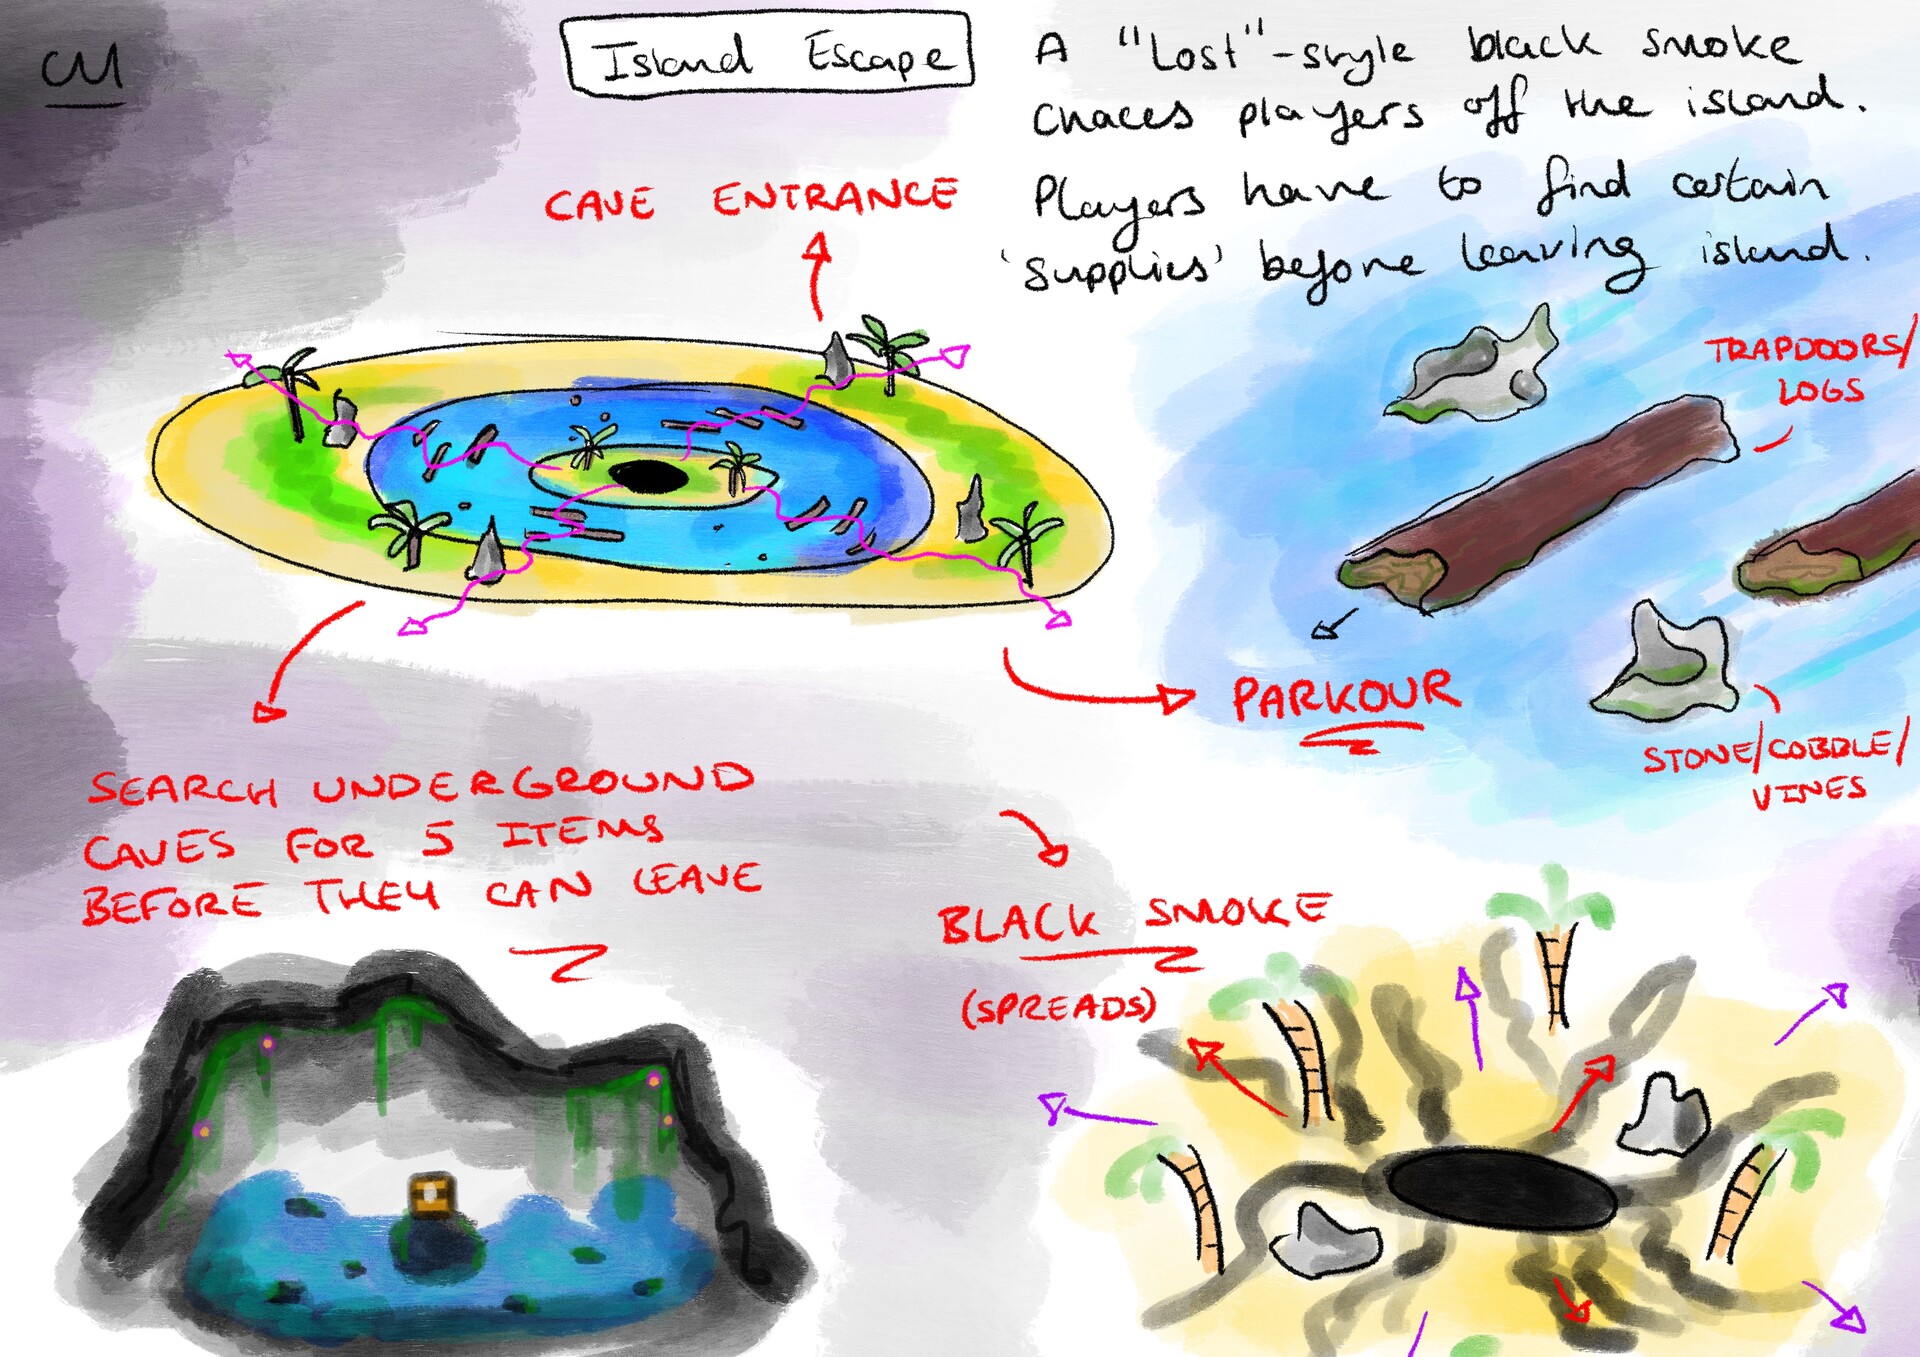 CM
Island Escape
A "Lost"-style black smoke
chaces players off the island.
Players have to find certain
'supplies' before leaving island.
CAVE ENTRANCE
TRAPDOORS/
LOGS
PARKOUR
STONE/COBBLE/
VINES
SEARCH UNDERGROUND
CAVES FOR 5 ITEMS
BEFORE THEY CAN LEAVE
BLACK SMOKE
(SPREADS)